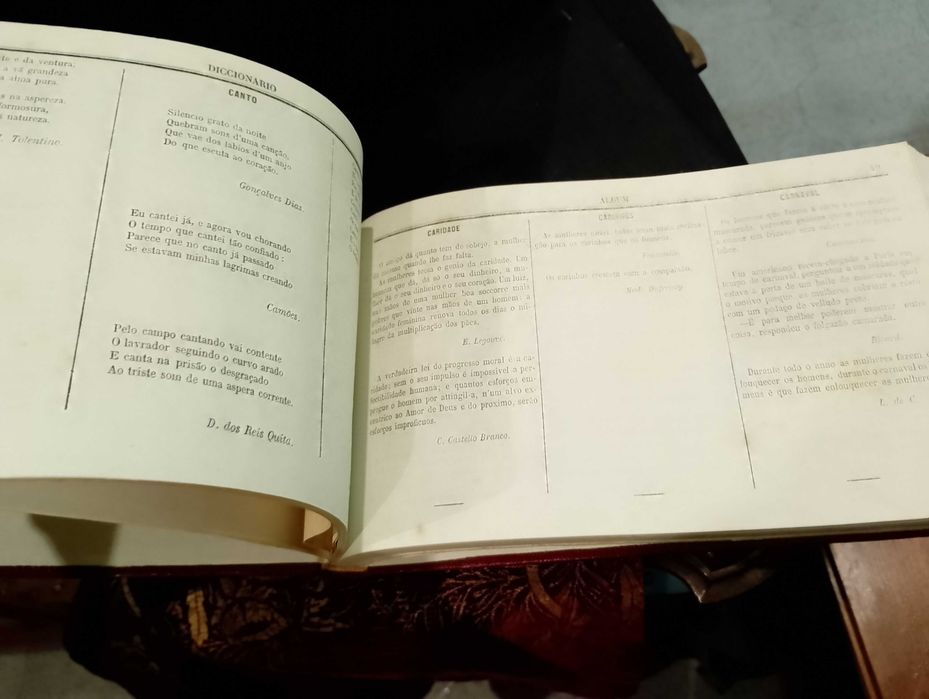 te e da ventura.
a vã grandeza
a alma pura.
s na aspereza.
formosura,
s natureza.
Tolentino.
DICCIONARIO
CANTO
Silencio grato da noite
Quebram sons d'uma canção,
Que vae dos labios d'um anjo
Do que escuta ao coração.
Gonçalves Dias.
Eu cantei já, e agora vou chorando
O tempo que cantei tão confiado:
Parece que no canto já passado
Se estavam minhas lagrimas creando
Camões.
Pelo campo cantando vai contente
O lavrador seguindo o curvo arado
E canta na prisão o desgraçado
Ao triste som de uma aspera corrente.
D. dos Reis Quita.
ALBUM
CARIDADE
O amigo dá quanto tem de sobejo, a mulher
dá quando lhe faz falta.
As mulheres teem o genio da caridade. Um
homem que dá, dá só o seu dinheiro, a mu-
lher dá o seu dinheiro e o seu coração. Um luiz,
nas mãos de uma mulher boa soccorre mais
pobres que vinte nas mãos de um homem: a
caridade feminina renova todos os dias o mi-
lagre da multiplicação dos pães.
E. Legouvé.
A verdadeira lei do progresso moral é a ca-
ridade; sem o seu impulso é impossivel a per-
fectibilidade humana; e quantos esforços em-
pregue o homem por attingil-a, n'um alvo ex-
centrico ao Amor de Deus e do proximo, serão
esforços improficuos.
C. Castello Branco.
As mulheres
ção para os carinhos que os homens.
Os carinhos crescem com a compaixão.
CARNAVAL
os homens que
Um americano recem-chegado a Paris em
tempo de carnaval, perguntou a um soldado que
estava á porta de um baile de mascaras, qual
o motivo porque as mulheres cobriam o rosto
com um pedaço de velludo preto.
—É para melhor poderem mostrar outra
coisa, respondeu o folgazão camarada.
Ricard.
Durante todo o anno as mulheres fazem e
louquecer os homens, durante o carnaval os
mens é que fazem enlouquecer as mulhere
L. de C.